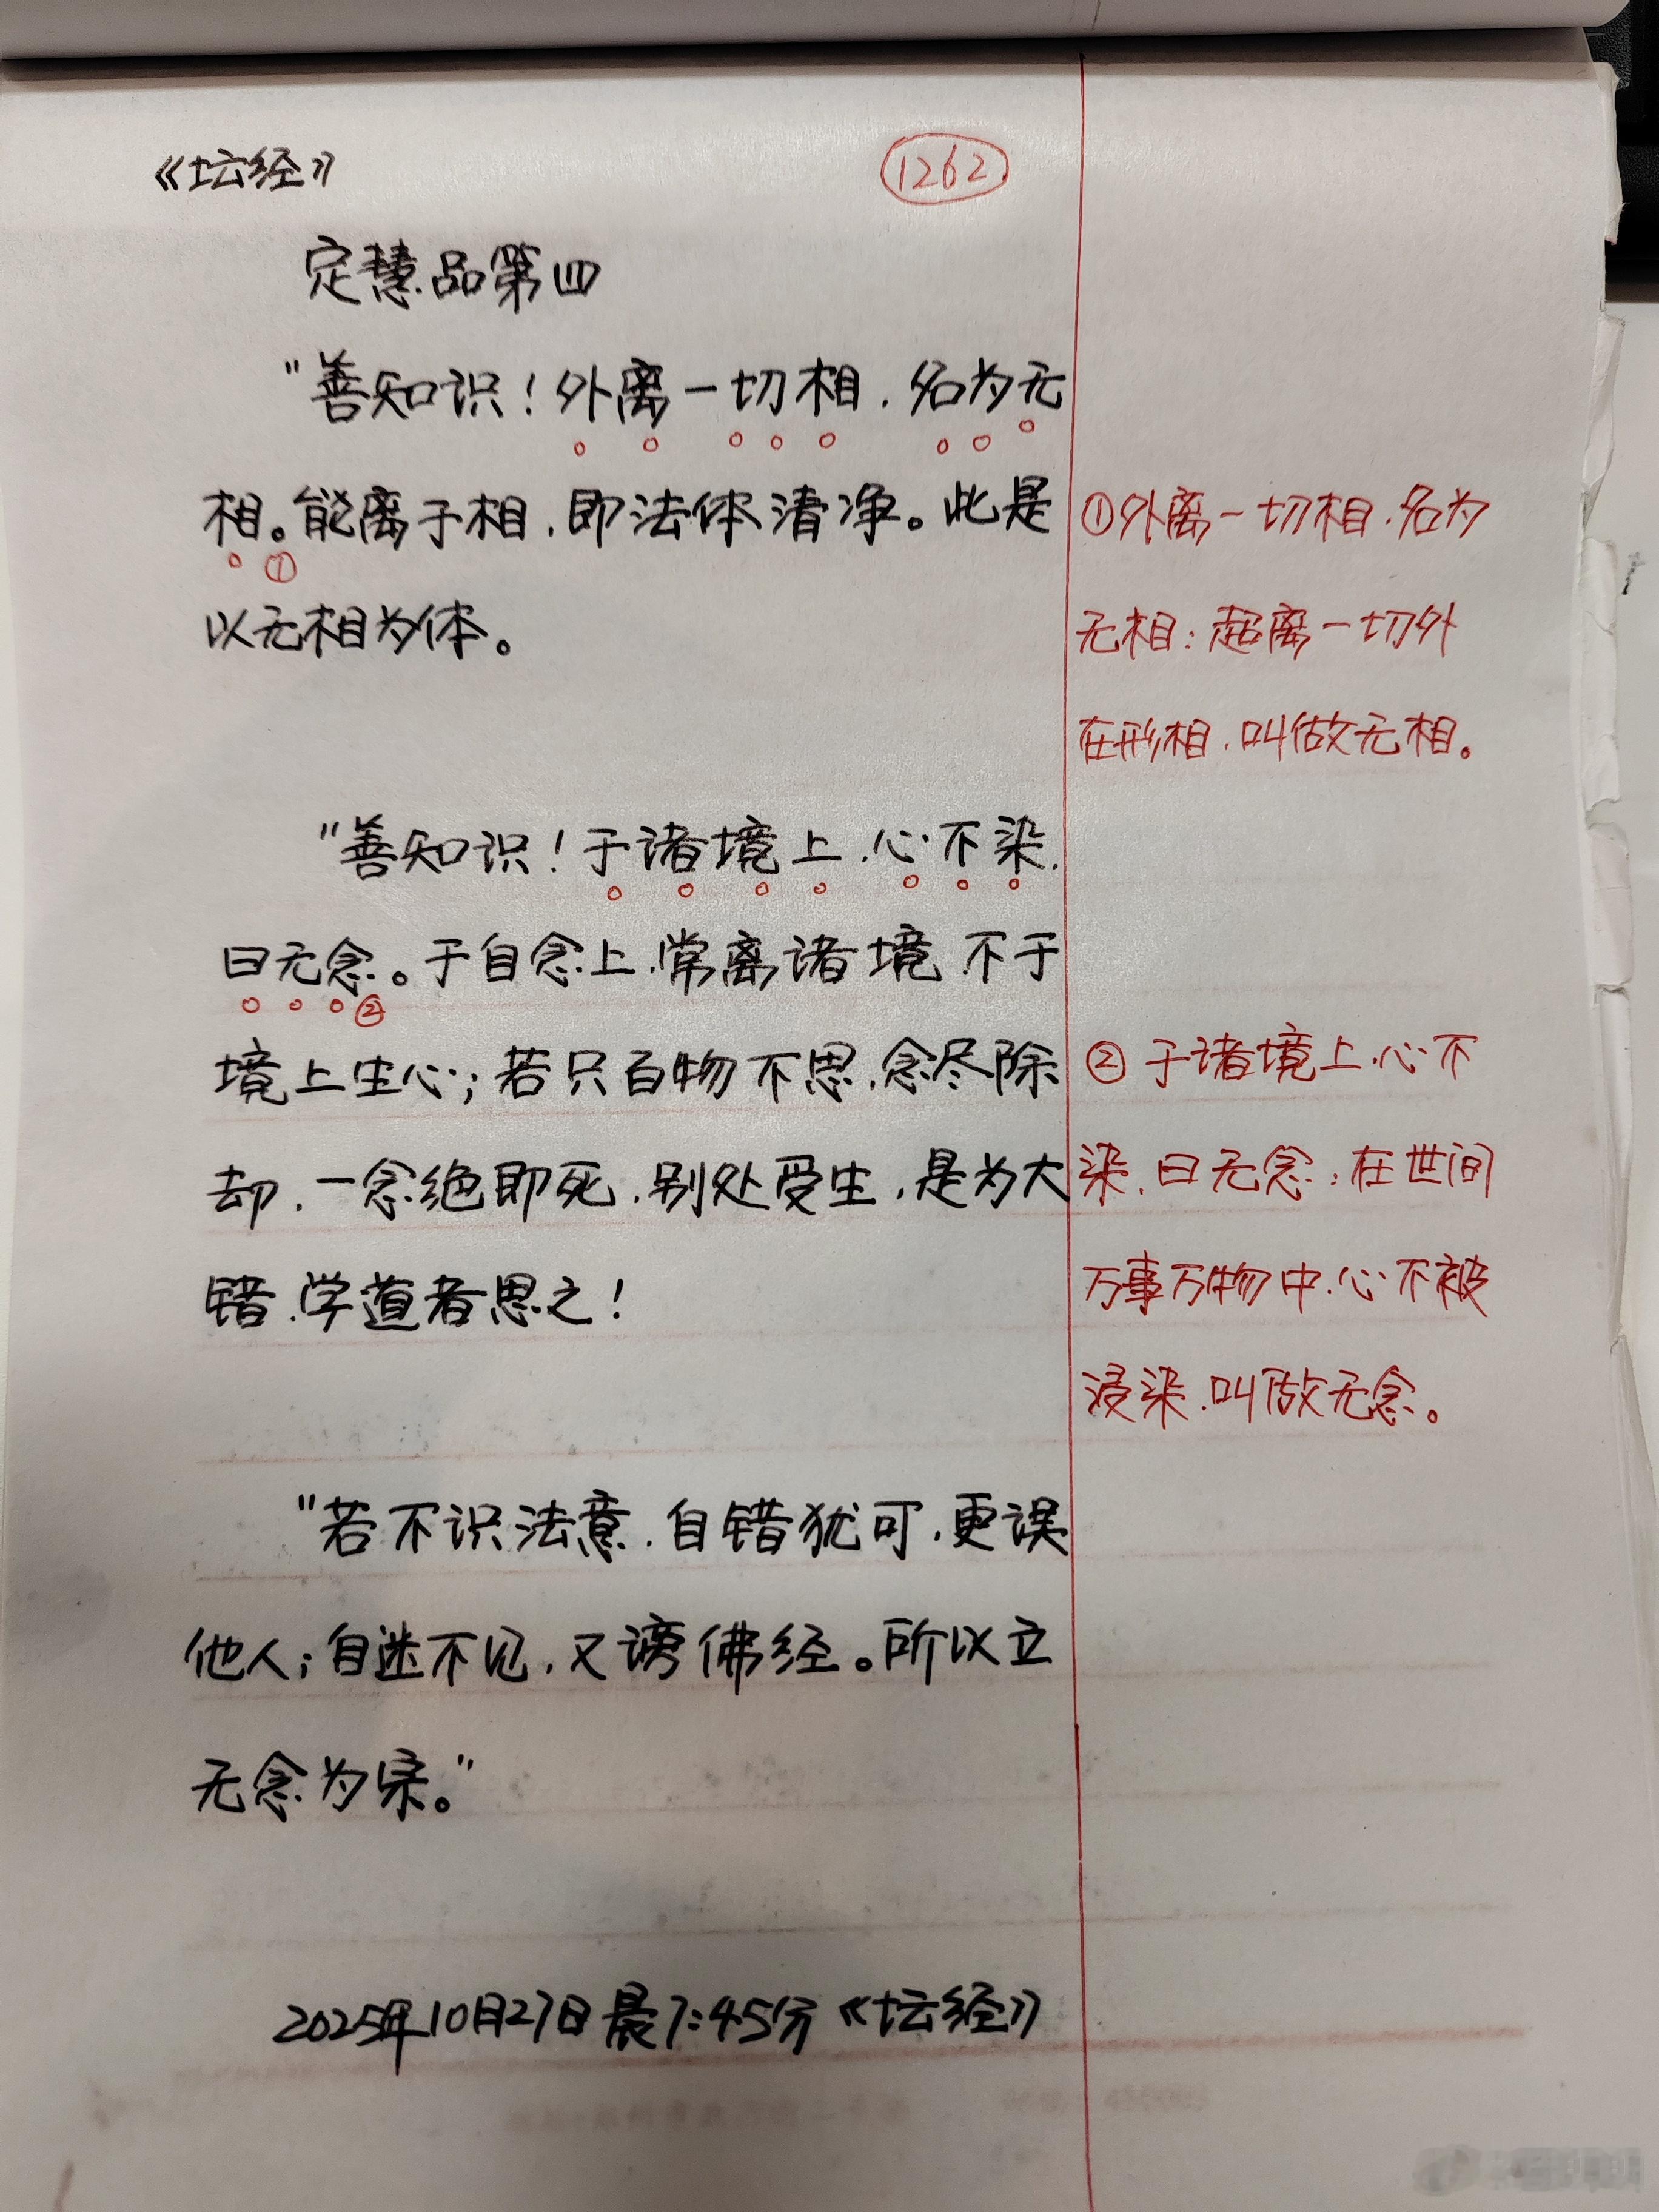 《坛经》
1262
定慧品第四
"善知识！外离一切相，名为无
相。①能离于相，即法体清净。此是
以无相为体。
①外离一切相，名为
无相：超离一切外
在形相，叫做无相。
"善知识！于诸境上，心不染，
曰无念。②于自念上，常离诸境，不于
境上生心；若只百物不思，念尽除
却，一念绝即死，别处受生，是为大
错，学道者思之！
②于诸境上，心不
染，曰无念：在世间
万事万物中，心不被
浸染，叫做无念。
"若不识法意，自错犹可，更误
他人；自迷不见，又谤佛经。所以立
无念为宗。"
2025年10月27日晨7:45分《坛经》